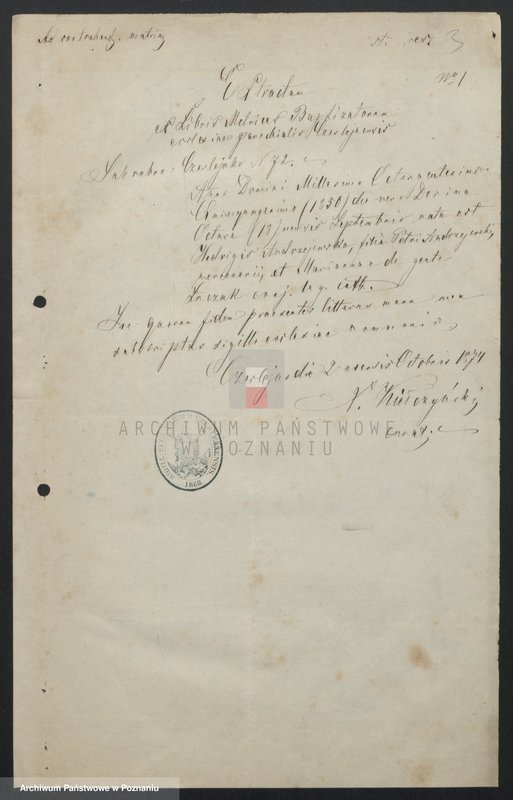 Ad contrahend. matrim
3
No 1
Extractum
ex Libris Metrices Baptizatorum
ecclesiae parochialis Czeslejensis
Sub rubro: Czeslejsko N 72.
Anno Domini Millesimo Octingentesimo
Quinquagesimo (1850) die vero Decima
Octava (18) mensis Septembris nata est
Hedvigis Andrzejewska, filia Petri Andrzejewski,
mercenarii, et Marianna de gente
conj. leg. cath.
In quorum fidem praesentes litteras manu mea
subscriptas sigillo ecclesiae communio
die 2 mensis Octobris 1874
N. Kulczyński
curat.
1866
ARCHIWUM PAŃSTWOWE
W POZNANIU
Archiwum Państwowe w Poznaniu